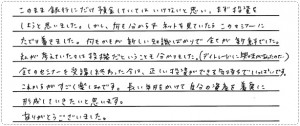 このまま銀行にだけ預金していてはいけないと思い、まず投資を
しようと思いました。しかし、何も分からず ネットを見ていたらこのセミナーに
たどり着きました。何もかもが新しい知識ばかりで全てが新鮮でした。
私が考えていたのは投機だということも分かりました。(デイトレードに興味があったので…)
全てのセミナーを受講し終わった今は、正しい投資ができる気持ちでいっぱいです。
これからがすごく楽しみです。長い年月をかけて自分の資産を着実に
形成していきたいと思います。
ありがとうございました。